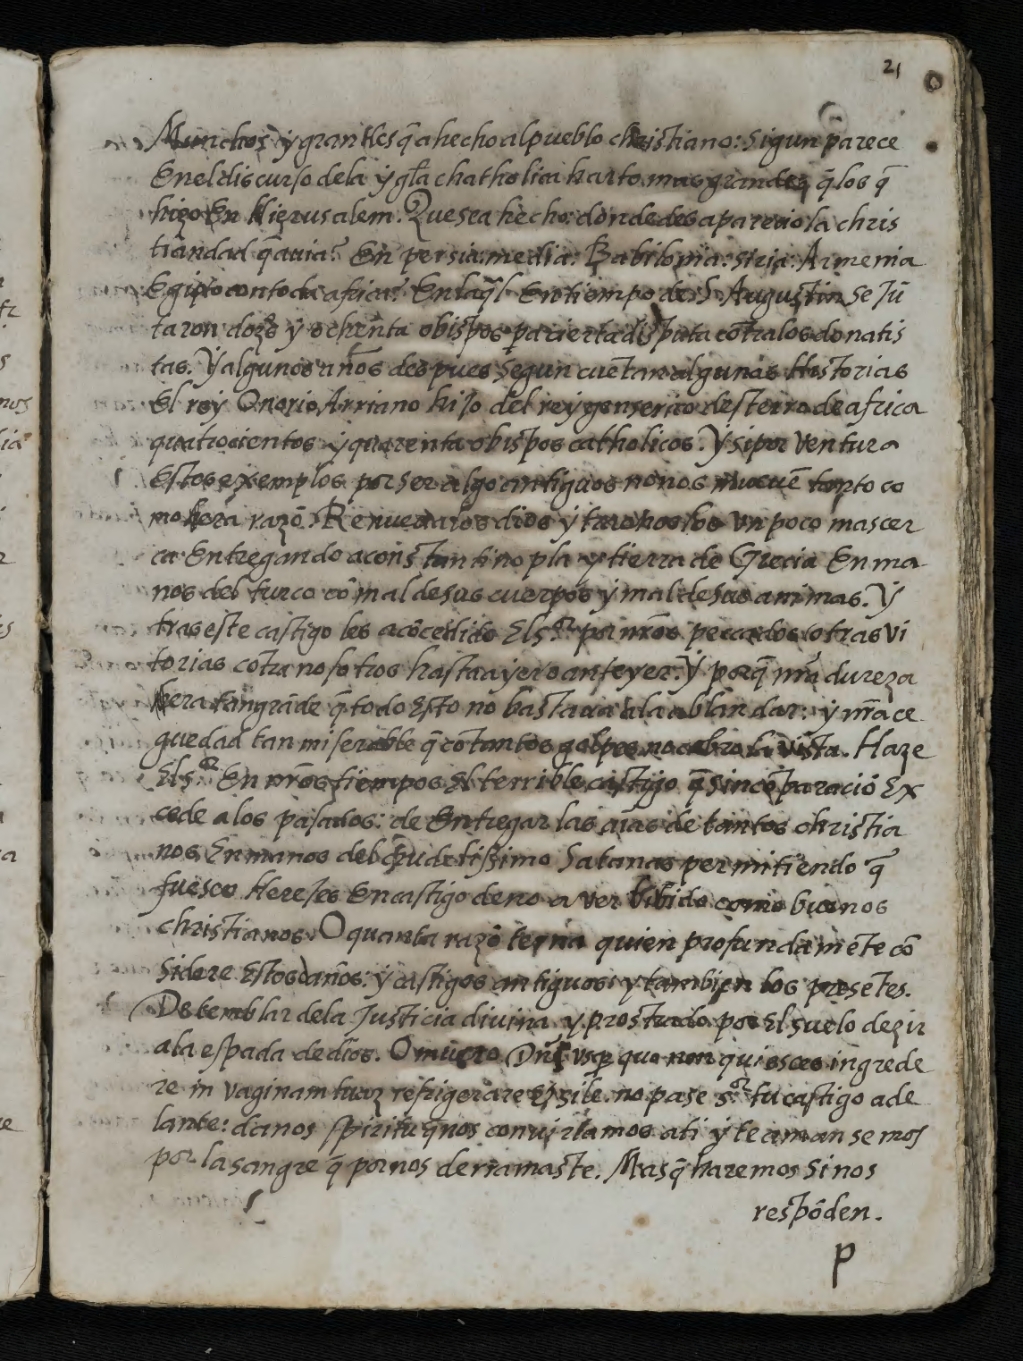 21
Munchos y grandes q̃ a hecho al pueblo christiano: sigun parece
En el discurso de la ygl̃a chatholica harto mas grandes q̃ los q̃
hizo En Hierusalem. Que sea hecho: donde desaparecio la chris
tiandad q̃ auia? En persia: media: Babilonia: siria: Armenia
Egipto con toda africa? En laq̃l En tiempo de S. Augustin se jũ
taron doze y ochenta obispos pa cierta disputa cõtra los donatis
tas. Y algunos años despues segun cuẽtan algunas Historias
El rey Onorio Arriano hijo del rey genserico desterro de africa
quatrocientos y quarenta obispos catholicos. Y si por ventura
Estos exemplos por ser algo antiguos no nos mueuẽ tanto co
mo hera razõ. Renueualos dios y traenoslos un poco mas cer
ca Entregando a constantinopla y tierra de Grecia En ma
nos del turco cõ mal de sus cuerpos y mal de sus animas. Y
tras este castigo les a cõcedido El s.or por nr̃os pecados otras vi
torias cõtra nosotros hasta ayer o anteyer. Y porq̃ nr̃a dureza
hera tan grãde q̃ todo Esto no bastaua a la ablandar: y nr̃a ce
guedad tan miserable q̃ cõ tantos golpes no cobro la vista. Haze
El s.or En nr̃os tiempos El terrible castigo q̃ sin cõparaciõ Ex
cede a los pasados: de Entregar las aĩas de tantos christia
nos En manos del crudelissimo Satanas permitiendo q̃
fuesen Hereies En castigo de no aver bibido como buenos
christianos. O quanta razõ terna quien profundamẽte cõ
sidere Estos daños. y castigos antiguos: y tambien los presẽtes.
De temblar de la Justicia divina y prostrado por El suelo dezir
a la espada de dios. O mucro Dñi vsq̃ quo non quiesces ingrede
re in vaginam tuaz refrigerare Et sile. no pase s.or tu castigo ade
lante: danos spiritu q̃ nos conuirtamos a ti y te amansemos
por la sangre q̃ por nos derramaste. Mas q̃ haremos si nos
respõden.
p